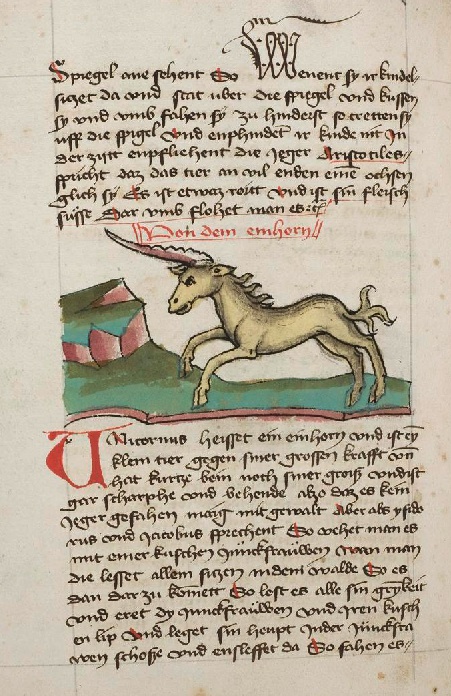 Spiegel ane sehent So Wenent sy ir kindel-
sitzet da vnd stat vber die spiegel vnd kussen
sy vnd vmb fahen sy zu hinderst so tretten sy
vff die spigel Vnd enphindet ir kinde nit In
der zitt enpfliehent die Jeger Aristotiles
spricht daz das tier an vil enden eine ochsen
glich sy Es ist etwaz rott Vnd ist sin fleisch
susse Dar vmb flohet man es
Von dem einhorn
Unicornus heisset ein einhorn vnd ist ey
klein tier gegen siner grossen krafft vn
hat kurtze bein noch siner groß vnd ist
gar scharphe vnd behende also daz es kein
Jeger gefahen mag mit gewalt Aber als ysido
rus vnd Jacobus sprechent So vehet man es
mit einer kuschen Junckfrauwen wan man
die lesset allein sitzen in dem walde So es
dan dar zu komett So lest es alle sin
vnd eret dy Junckfrauwen vnd Iren kusch
en lip Vnd leget sin heupt In der Junckfra
wen schosse vnd entslesset da So fahen es